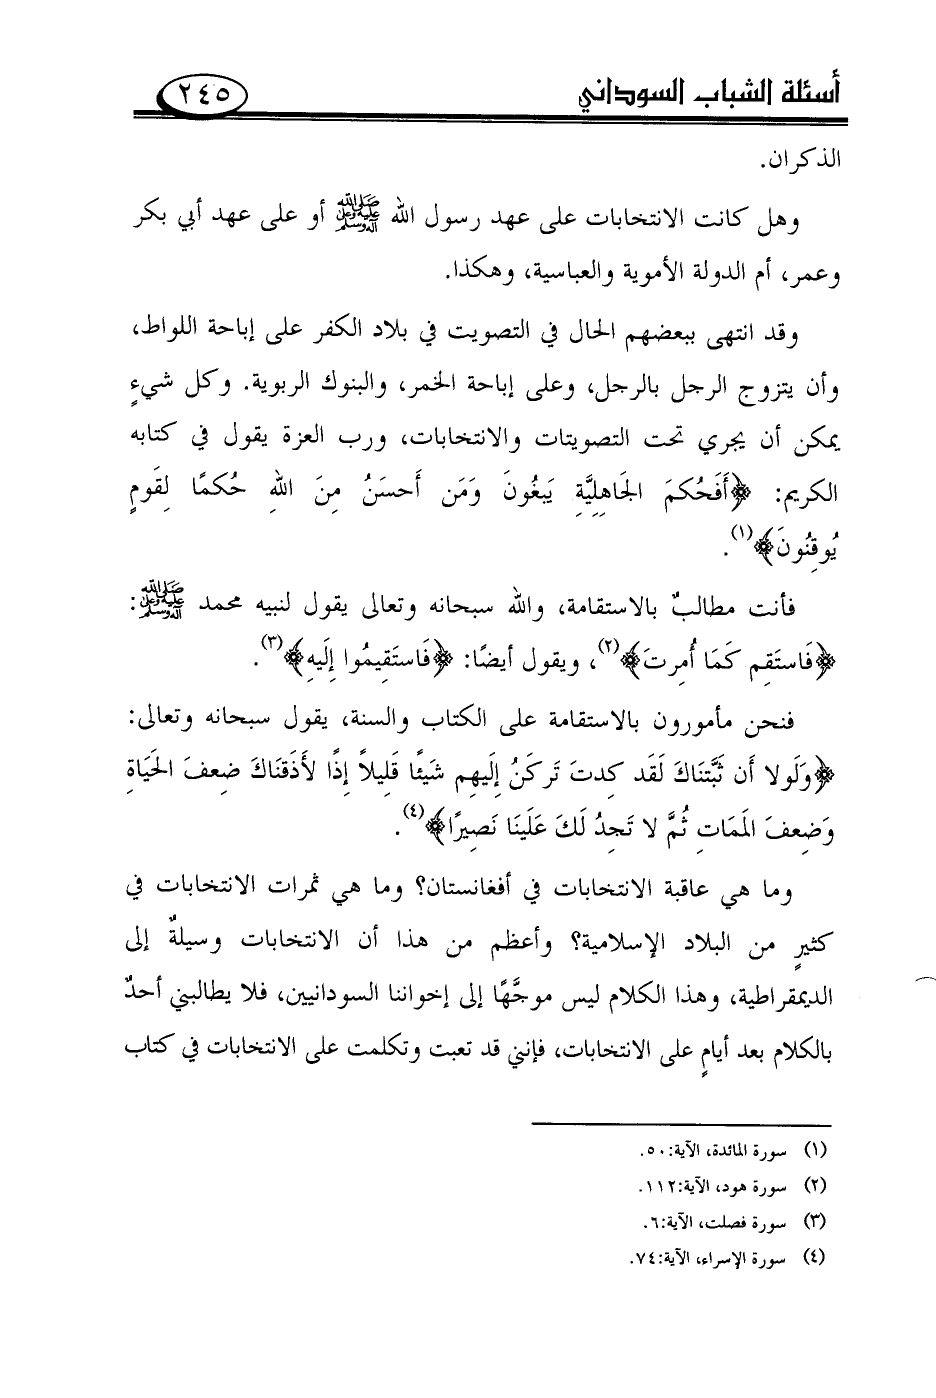 أسئلة الشباب السوداني ٢٤٥
الذكران.
وهل كانت الانتخابات على عهد رسول الله ﷺ أو على عهد أبي بكر
وعمر، أم الدولة الأموية والعباسية، وهكذا.
وقد انتهى ببعضهم الحال في التصويت في بلاد الكفر على إباحة اللواط،
وأن يتزوج الرجل بالرجل، وعلى إباحة الخمر، والبنوك الربوية. وكل شيءٍ
يمكن أن يجري تحت التصويتات والانتخابات، ورب العزة يقول في كتابه
الكريم: ﴿أَفَحُكمَ الجَاهِلِيَّةِ يَبغُونَ وَمَن أَحسَنُ مِنَ اللهِ حُكمًا لِقَومٍ
يُوقِنُونَ﴾(١).
فأنت مطالبٌ بالاستقامة، والله سبحانه وتعالى يقول لنبيه محمد ﷺ:
﴿فَاستَقِم كَمَا أُمِرتَ﴾(٢)، ويقول أيضًا: ﴿فَاستَقِيمُوا إِلَيهِ﴾(٣).
فنحن مأمورون بالاستقامة على الكتاب والسنة، يقول سبحانه وتعالى:
﴿وَلَولا أَن ثَبَّتنَاكَ لَقَد كِدتَ تَركَنُ إِلَيهِم شَيئًا قَلِيلاً إِذًا لأَذَقنَاكَ ضِعفَ الحَيَاةِ
وَضِعفَ المَمَاتِ ثُمَّ لا تَجِدُ لَكَ عَلَينَا نَصِيرًا﴾(٤).
وما هي عاقبة الانتخابات في أفغانستان؟ وما هي ثمرات الانتخابات في
كثيرٍ من البلاد الإسلامية؟ وأعظم من هذا أن الانتخابات وسيلةٌ إلى
الديمقراطية، وهذا الكلام ليس موجَّهًا إلى إخواننا السودانيين، فلا يطالبني أحدٌ
بالكلام بعد أيامٍ على الانتخابات، فإنني قد تعبت وتكلمت على الانتخابات في كتاب
(١) سورة المائدة، الآية:٥٠.
(٢) سورة هود، الآية:١١٢.
(٣) سورة فصلت، الآية:٦.
(٤) سورة الإسراء، الآية:٧٤.